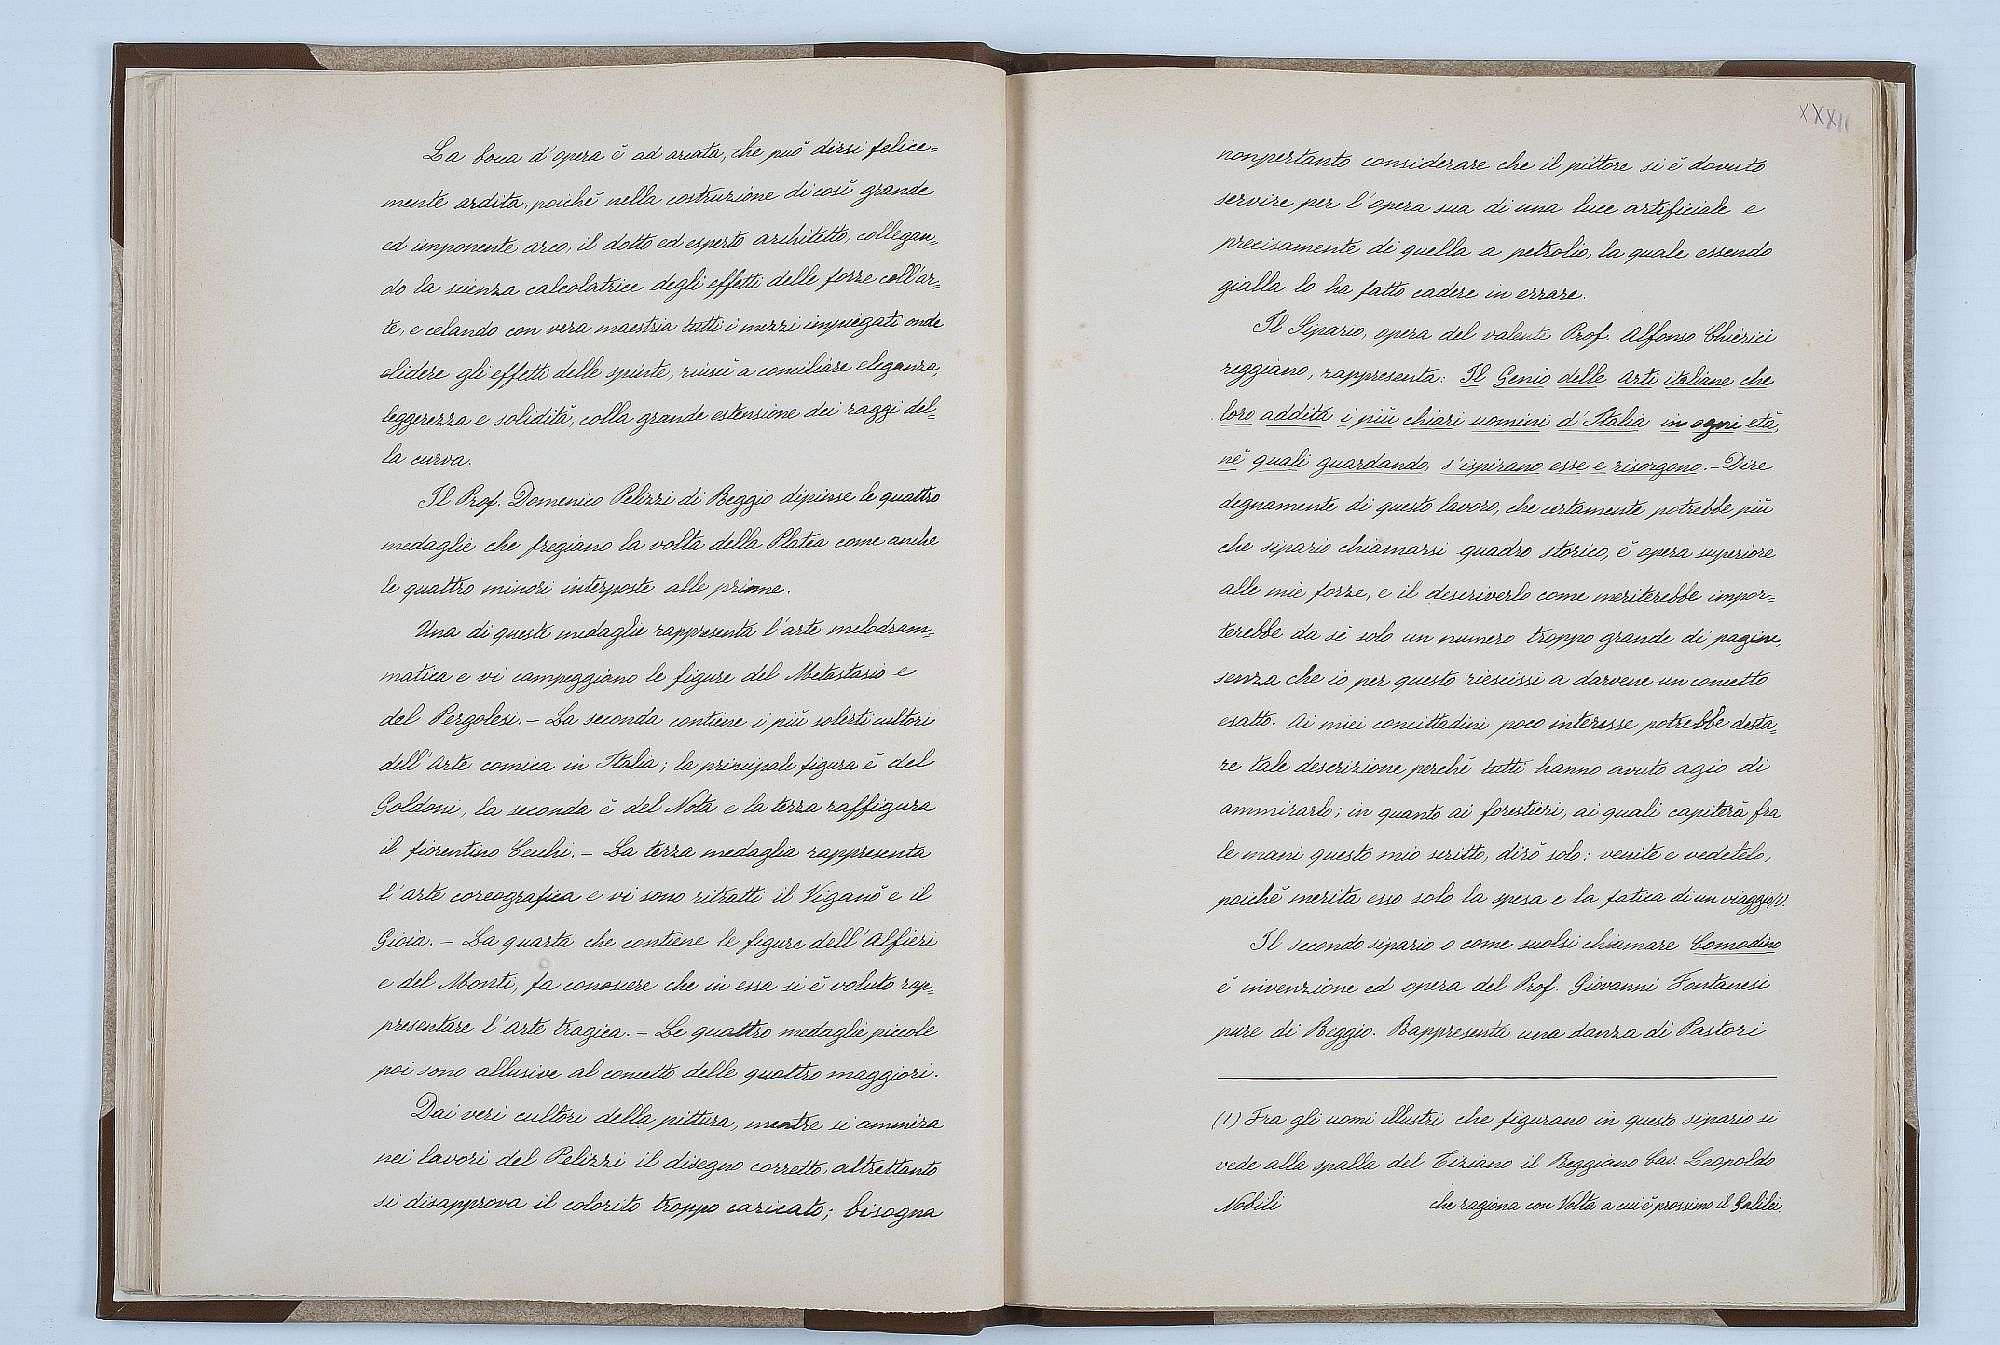 La boca d'opera è ad arcata, che può dirsi felice=
mente ardita, poichè nella costruzione di così grande
ed imponente arco, il dotto ed esperto architetto, collegan=
do la scienza calcolatrice degli effetti delle forze coll'ar=
te, e celando con vera maestria tutti i mezzi impiegati onde
elidere gli effetti delle spinte, riuscì a conciliare eleganza,
leggerezza e solidità, colla grande estensione dei raggi del=
la curva.
Il Prof. Domenico Pelizzi di Reggio dipinse le quattro
medaglie che fregiano la volta della Platea come anche
le quattro minori interposte alle prime.
Una di queste medaglie rappresenta l'arte melodram=
matica e vi campeggiano le figure del Metastasio e
del Pergolesi. – La seconda contiene i più solerti cultori
dell'Arte comica in Italia; la principale figura è del
Goldoni, la seconda è del Nota e la terza raffigura
il fiorentino Cecchi. – La terza medaglia rappresenta
l'arte coreografica e vi sono ritratti il Viganò e il
Gioia. – La quarta che contiene le figure dell'Alfieri
e del Monti, fa conoscere che in essa si è voluto rap=
presentare l'arte tragica. – Le quattro medaglie piccole
poi sono allusive al concetto delle quattro maggiori.
Dai veri cultori della pittura, mentre si ammira
nei lavori del Pelizzi il disegno corretto, altrettanto
si disapprova il colorito troppo caricato; bisogna
XXXII
nonpertanto considerare che il pittore si è dovuto
servire per l'opera sua di una luce artificiale e
precisamente di quella a petrolio, la quale essendo
gialla lo ha fatto cadere in errore.
Il Sipario, opera del valente Prof. Alfonso Chierici
reggiano, rappresenta: Il Genio delle Arti italiane che
loro addita i più chiari uomini d'Italia in ogni età,
nè quali guardando, s'ispirano esse e risorgono. – Dire
degnamente di questo lavoro, che certamente potrebbe più
che sipario chiamarsi quadro storico, è opera superiore
alle mie forze, e il descriverlo come meriterebbe impor=
terebbe da sè solo un numero troppo grande di pagine,
senza che io per questo riescissi a darvene un concetto
esatto. Ai miei concittadini poco interesse potrebbe desta=
re tale descrizione perchè tutti hanno avuto agio di
ammirarlo; in quanto ai forestieri, ai quali capiterà fra
le mani questo mio scritto, dirò solo: venite e vedetelo,
poichè merita esso solo la spesa e la fatica di un viaggio (1).
Il secondo sipario o come suolsi chiamare Comodino
è invenzione ed opera del Prof. Giovanni Fontanesi
pure di Reggio. Rappresenta una danza di Pastori
(1) Fra gli uomi illustri che figurano in questo sipario si
vede alla spalla del Tiziano il Reggiano Cav. Leopoldo
Nobili che ragiona con Volta a cui è prossimo il Galilei.